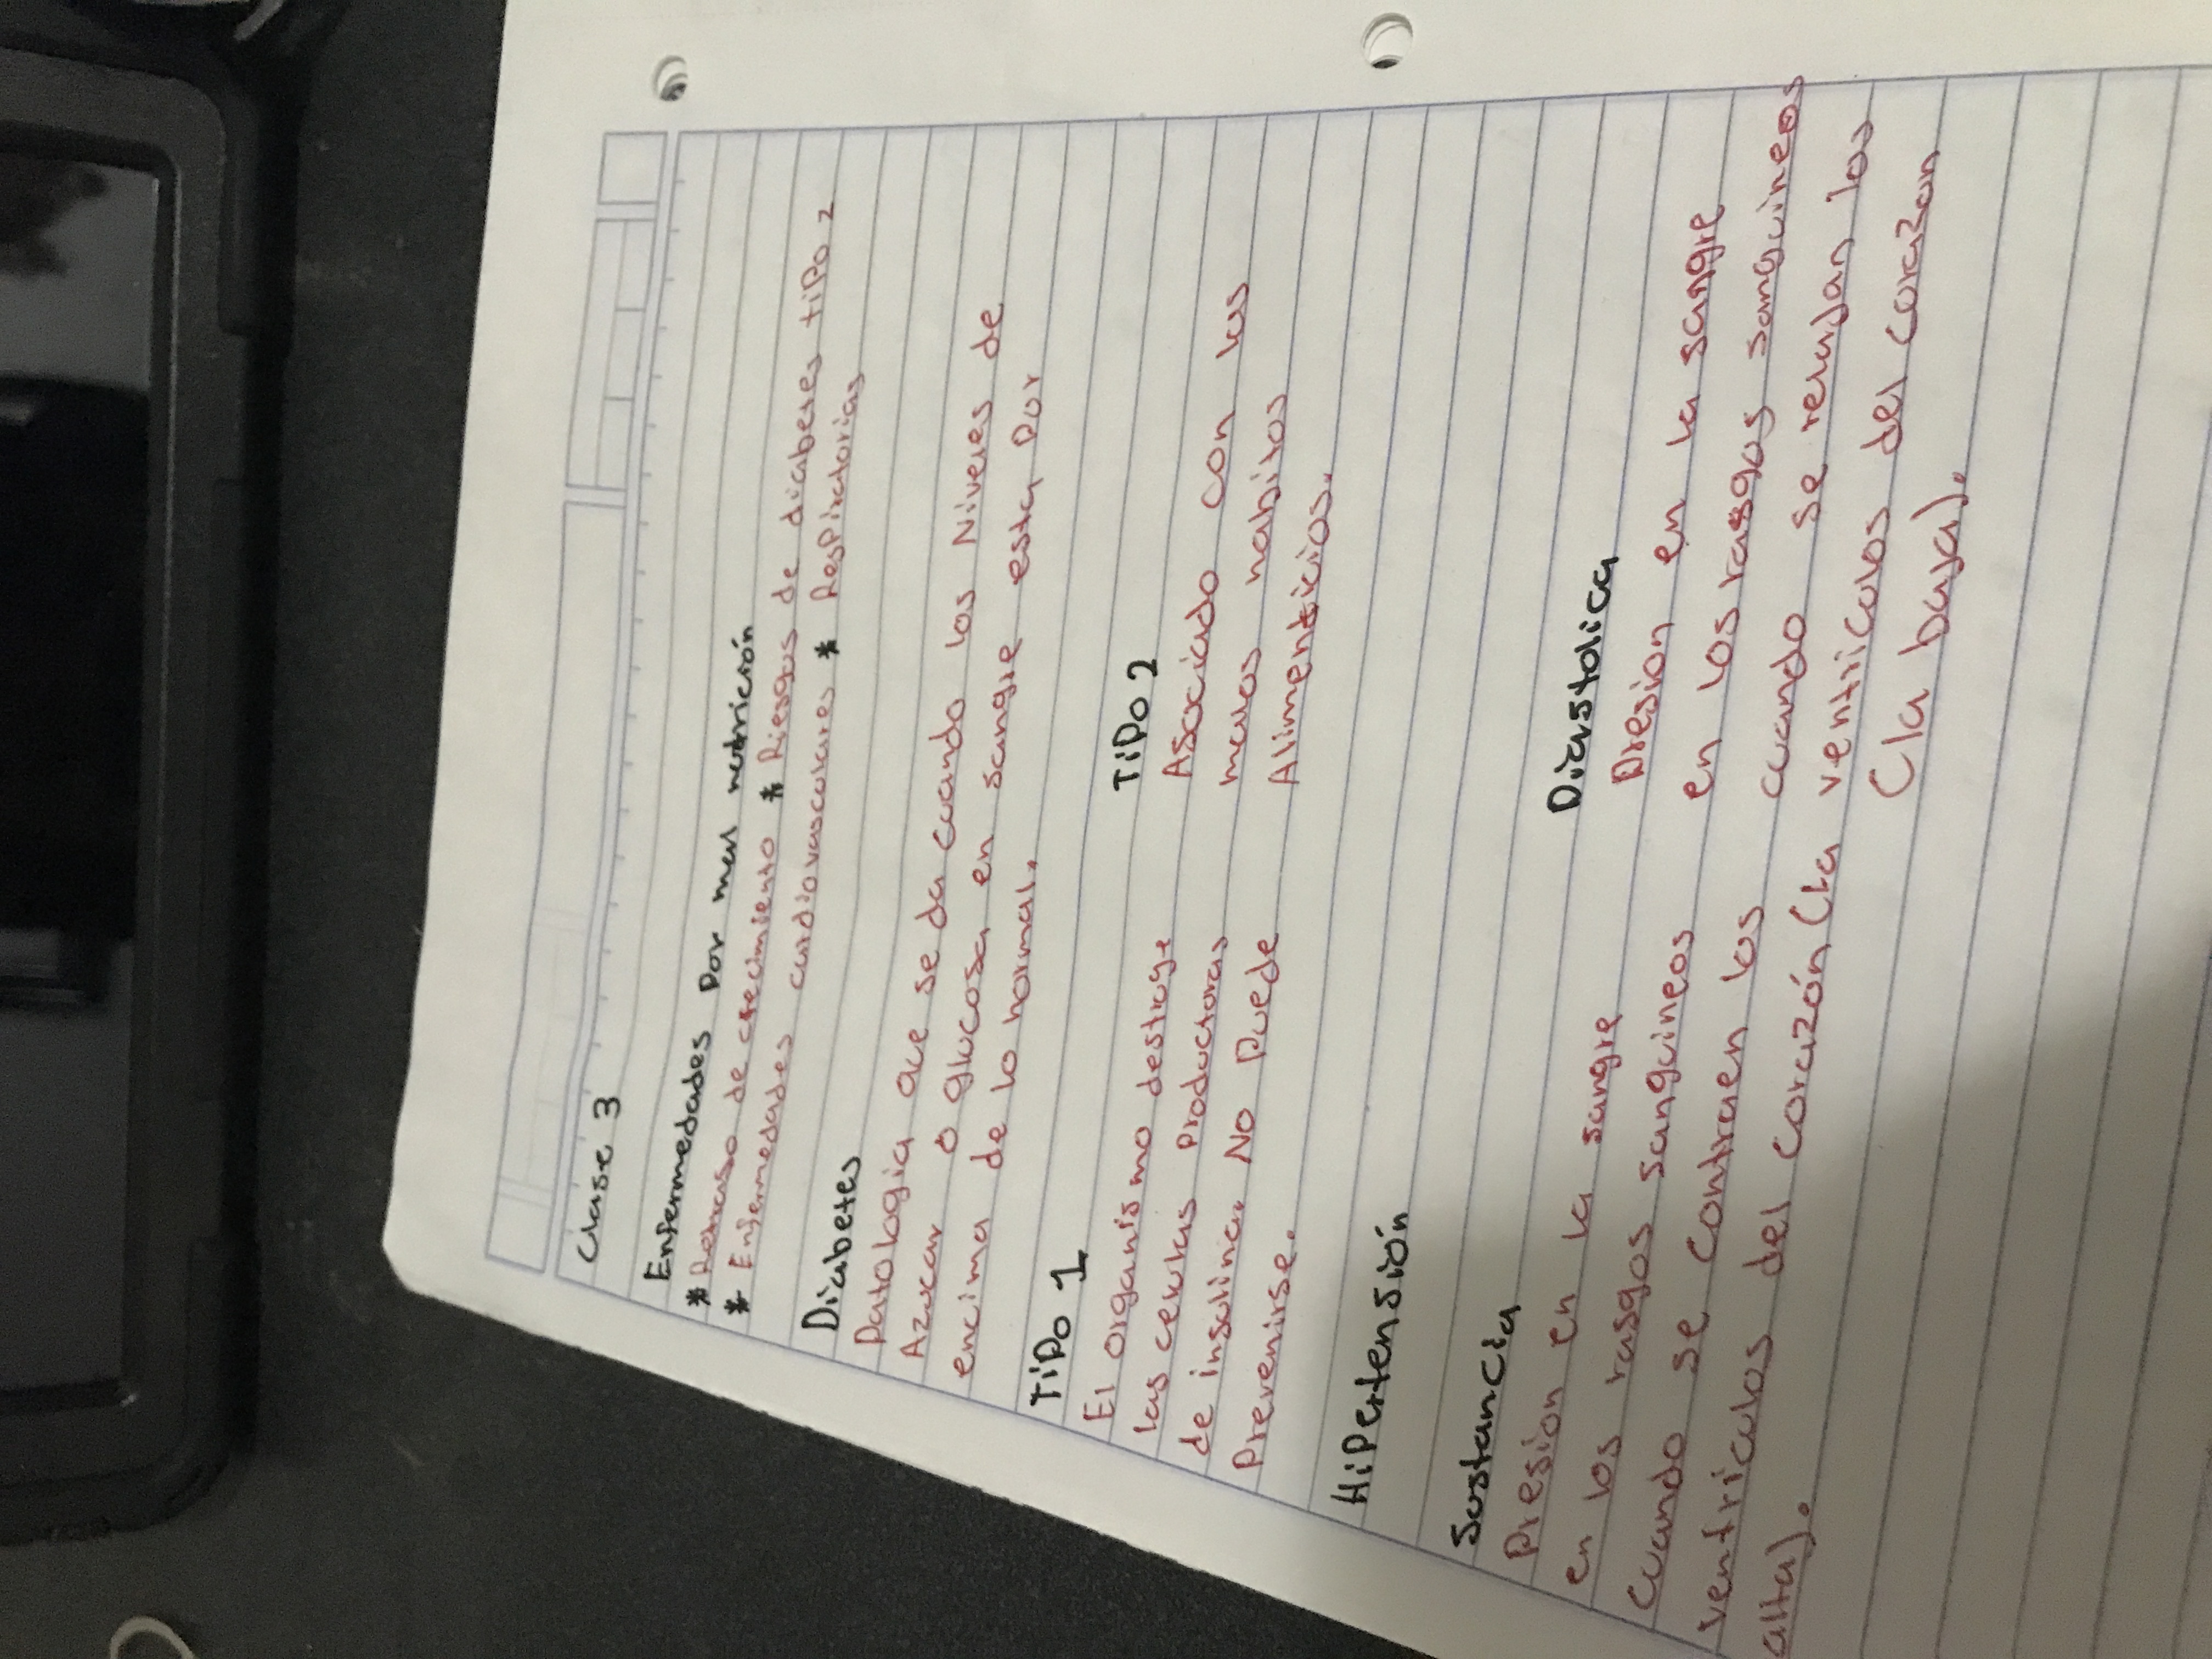 Clase 3
Enfermedades por mal nutrición
* Retraso de crecimiento * Riesgos de diabetes tipo 2
* Enfermedades cardiovasculares * Respiratorias
Diabetes
Patologia que se da cuando los Niveles de
Azucar o glucosa en sangre esta por
encima de lo normal.
Tipo 1
El organismo destruye
las celulas productoras
de insulina. No puede
prevenirse.
Tipo 2
Asociado con los
malos habitos
Alimenticios.
Hipertensión
Sustancia
Presion en la sangre
en los rasgos sanguineos
cuando se contraen los
ventriculos del corazón (la
alta).
Diastolica
Presion en la sangre
en los rasgos sanguineos
cuando se relajan los
ventriculos del corazon
(la baja).